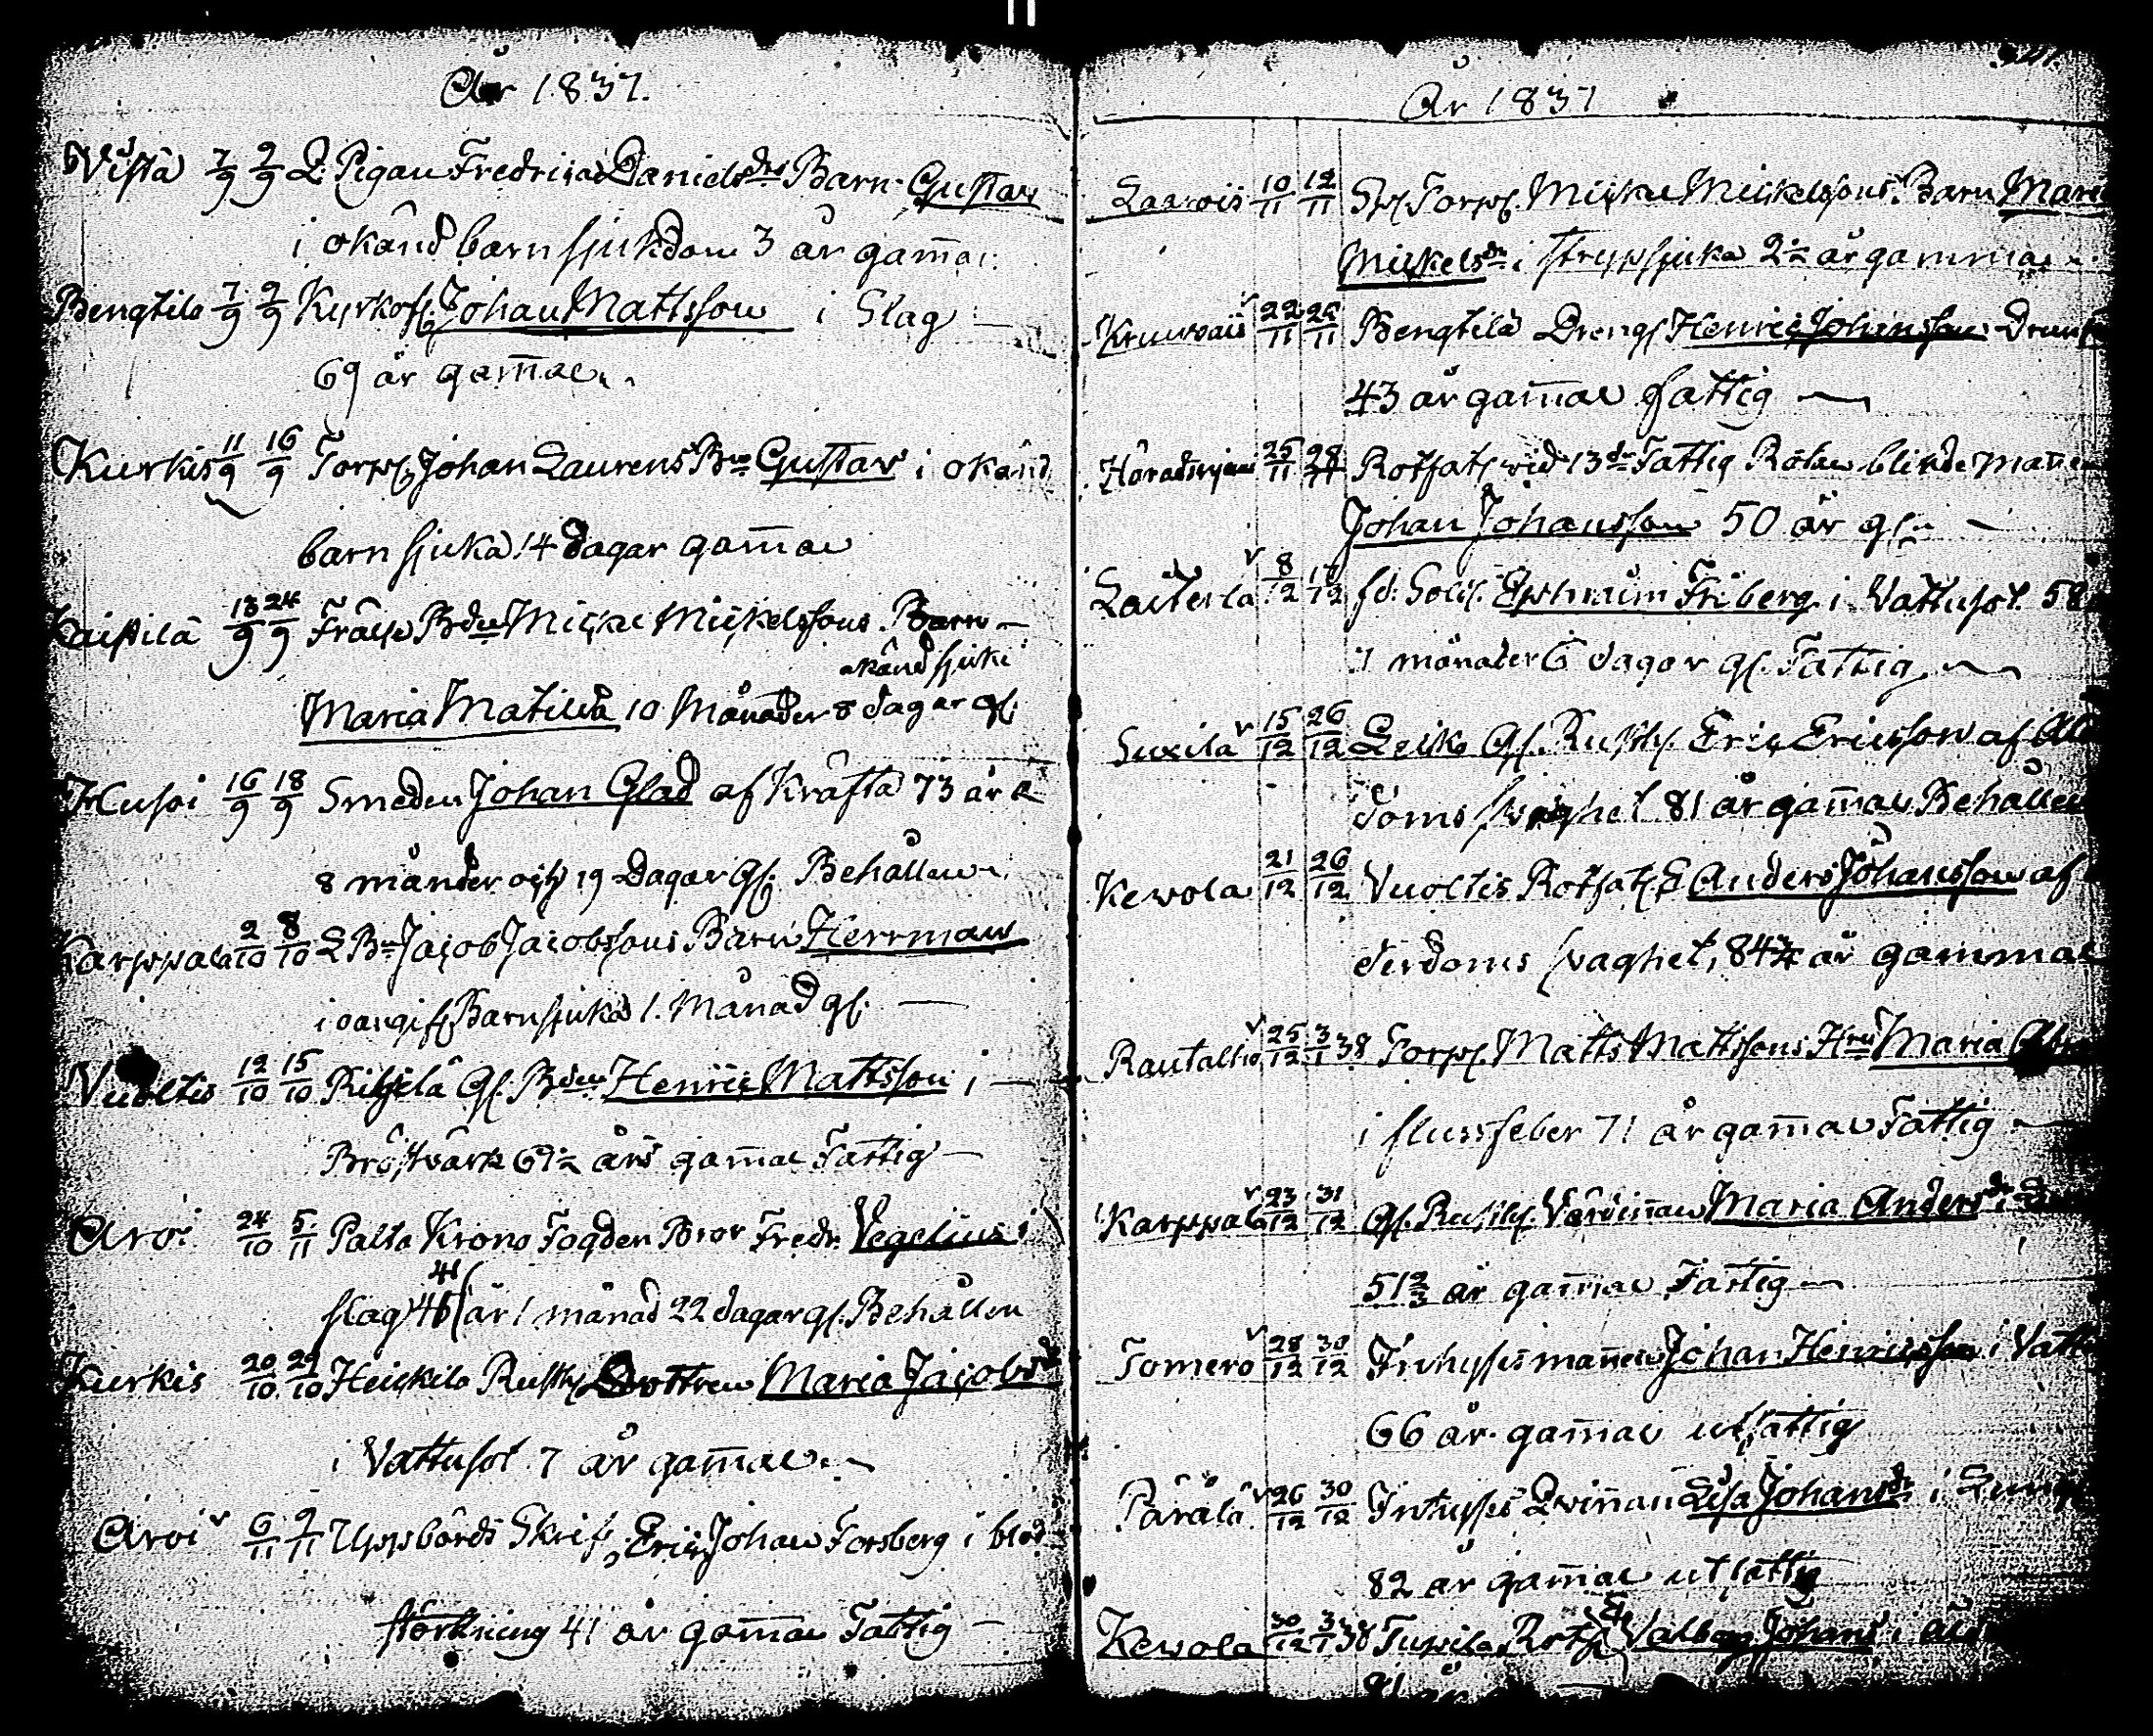 År 1837.
Vistä 7/9 9/9 L. Pigan Fredrica Danielsdrs Barn Gustav
i okänd barnsjukdom 3 år gam̄al
Bengtila 7/9 9/9 Johan Mattsson i Slag
69 år gam̄al
Kurkis 11/9 16/9 Torp. Johan Laurens Gustav i okänd
barnsjuka 14 dagar gam̄al
13/9 24/9 Frälse Mickel Mickelssons Barn
okänd sjuka
Maria Matilda 10 Månader 8 dagar gl.
16/9 18/9 Smeden Johan Glad af Kräfta 73 år
8 månder och 19 Dagar gl. Behållen
Karppala 2/10 8/10 Jacob Jacobssons Barn Herrman
i oangif. Barnsjuka 1. Månad gl.
Vuoltis 12/10 15/10 Gl. Henric Mattsson i
Bröstvärk 69½ års gam̄al Fattig
Aroi 24/10 5/11 Palta Krono Fogden Bror Fredr. Vegelius i
41
slag 46 år 1 månad 22 dagar gl. Behållen
Kurkis 20/10 29/10 Heickilä Rusth. Dottren Maria Jacobsdr
i Vattusot 7 år gam̄al
Aroi v 6/11 9/11 Uppbörds Skrif. Eric Johan Forsberg i blod
störtning 41 år gam̄al Fattig
År 1837
10/11 12/11 Torp. Mickel Mickelssons Barn Mari
Mickelsdr i strypsjuka 2½ år gammal
v 22/11 26/11 Bengtilä Dreng Henric Johansson
43 år gam̄al fattig
25/11 28/11 Rotfat. wid 13de Fattig Roten blinde man̄en
Johan Johansson 50 år gl.
Lauterla v 8/12 12/12 fd. Sold. Ephraim Friberg i Vattusot 58
7 månader 6 dagar gl. Fattig
Suxila v 15/12 26/12 Gl. Rusth. Eric Ericsson af Ål
doms svaghet 81 år gam̄al Behållen
Kewola 21/12 26/12 Vuoltis Rotfat. Anders Johansson af
derdoms svaghet, 84¾ år gammal
Rautalho v 25/12 3/1 38 Torp. Matts Mattssons Hru Maria
i flussfeber 71 år gam̄al Fattig
Karppala v 23/12 31/12 Gl. Rusth. Värdin̄an Maria Andersdr i
51⅔ år gam̄al Fattig
Tomero v 28/12 30/12 Inhyses man̄en Johan Henricsson i Vattu
66 år gam̄al utfattig
Pärälä v 26/12 30/12 Inhyses Qwin̄an Lisa Johansdr i
82 år gam̄al utfattig
Kewola 30/12 3/1 38 Valborg Johans i